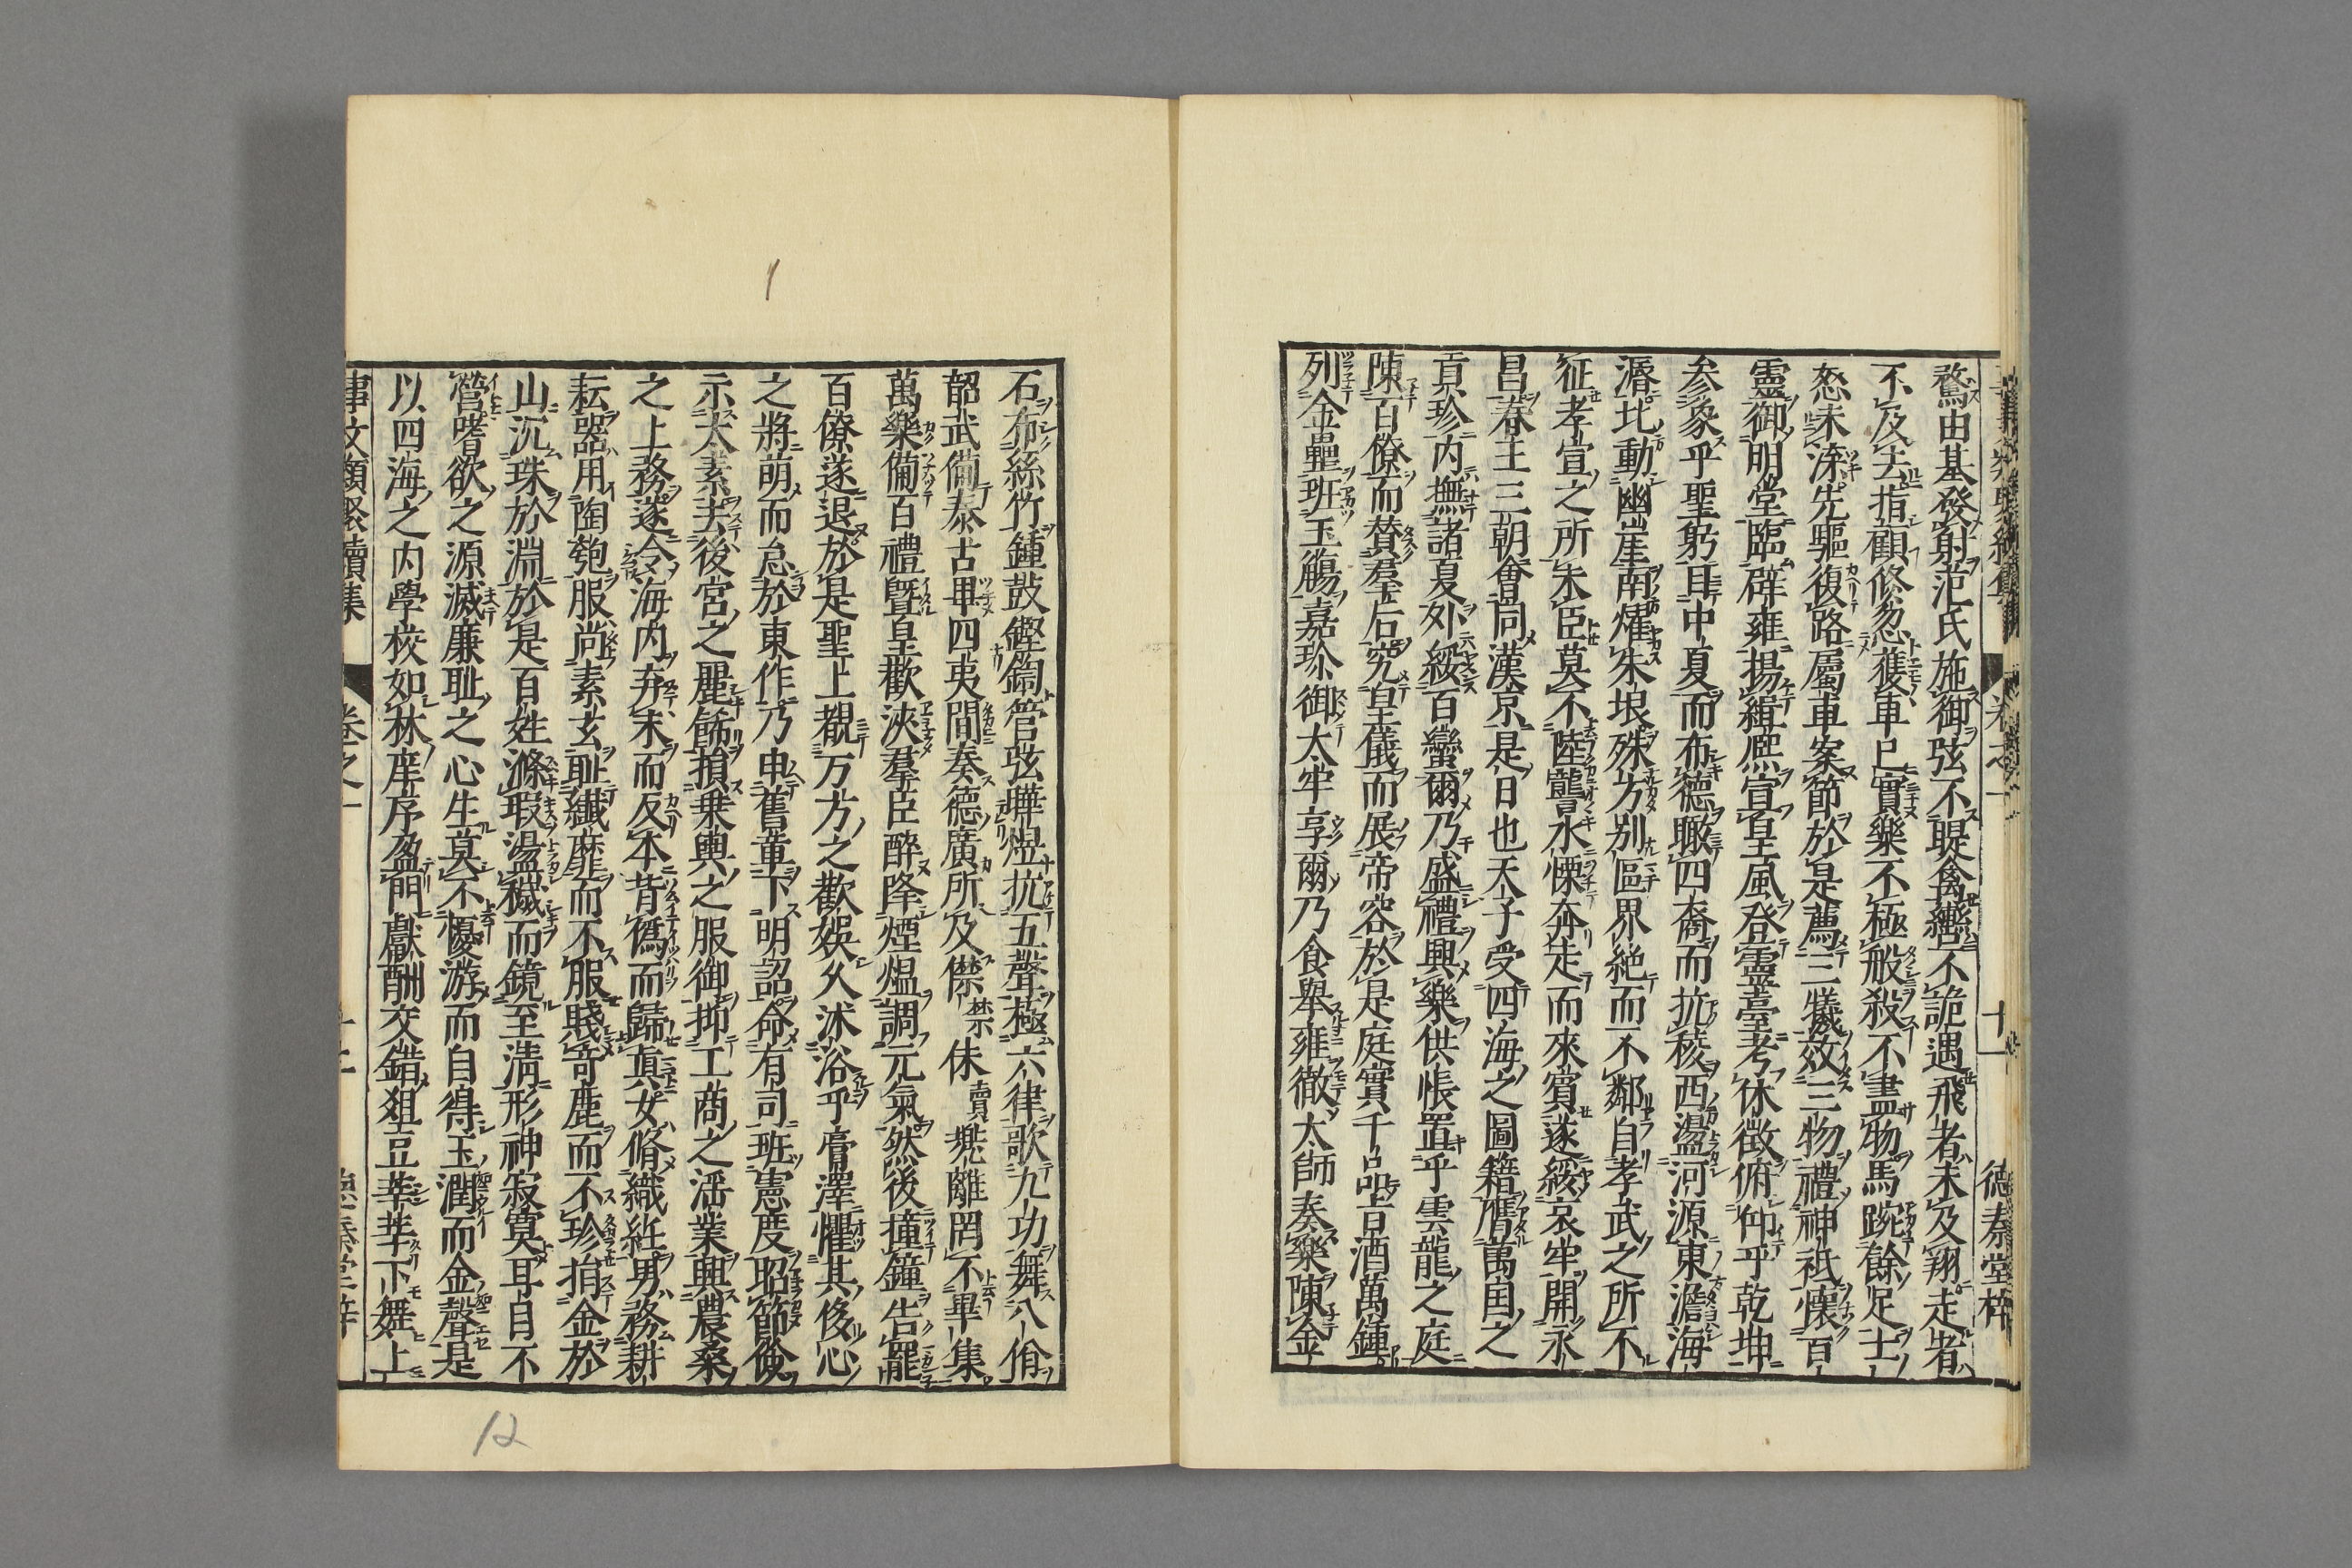 騖由基發射范氏施御弦不睼禽轡不詭遇飛者未及翔走者
不及去指顧倏忽獲車已實樂不極般殺不盡物馬踠餘足士
怒未渫先驅復路屬車案節於是薦三犧效三物禮神祇懷百
靈御明堂臨辟雍揚緝熙宣皇風登靈臺考休徵俯仰乎乾坤
参象乎聖躬目中夏而布德瞰四裔而抗稜西盪河源東澹海
漘北動幽崖南燿朱垠殊方别區界絶而不鄰自孝武之所不
征孝宣之所未臣莫不陸讋水慄奔走而來賓遂綏哀牢開永
昌春王三朝會同漢京是日也天子受四海之圖籍膺萬國之
貢珍内撫諸夏外綏百蠻爾乃盛禮興樂供帳置乎雲龍之庭
陳百僚而賛羣后究皇儀而展帝容於是庭實千品旨酒萬鍾
列金罍班玉觴嘉珍御太牢享爾乃食舉雍徹太師奏樂陳金
德泰堂梓
石布絲竹鍾鼓鏗鍧管弦曄煜抗五聲極六律歌九功舞八佾
韶武備泰古畢四夷間奏德廣所及僸禁侏賣兠離罔不畢集
萬樂備百禮曁皇歡浹羣臣醉降煙熅調元氣然後撞鐘告罷
百僚遂退於是聖上覩万方之歡娯久沐浴乎膏澤懼其侈心
之將萌而怠於東作乃申舊章下明詔命有司班憲度昭節儉
示太素去後宮之麗飾損乗輿之服御抑工商之淫業興農桑
之上務遂令海内弃末而反本背僞而歸真女脩織紝男務耕
耘器用陶匏服尚素玄耻纎靡而不服賤竒麗而不珍捐金於
山沉珠於淵於是百姓滌瑕盪穢而鏡至清形神寂寞耳目不
營嗜欲之源滅廉耻之心生莫不優游而自得玉潤而金聲是
以四海之内學校如林庠序盈門獻酬交錯爼豆莘莘下舞上
事文類聚續集 卷之一
12